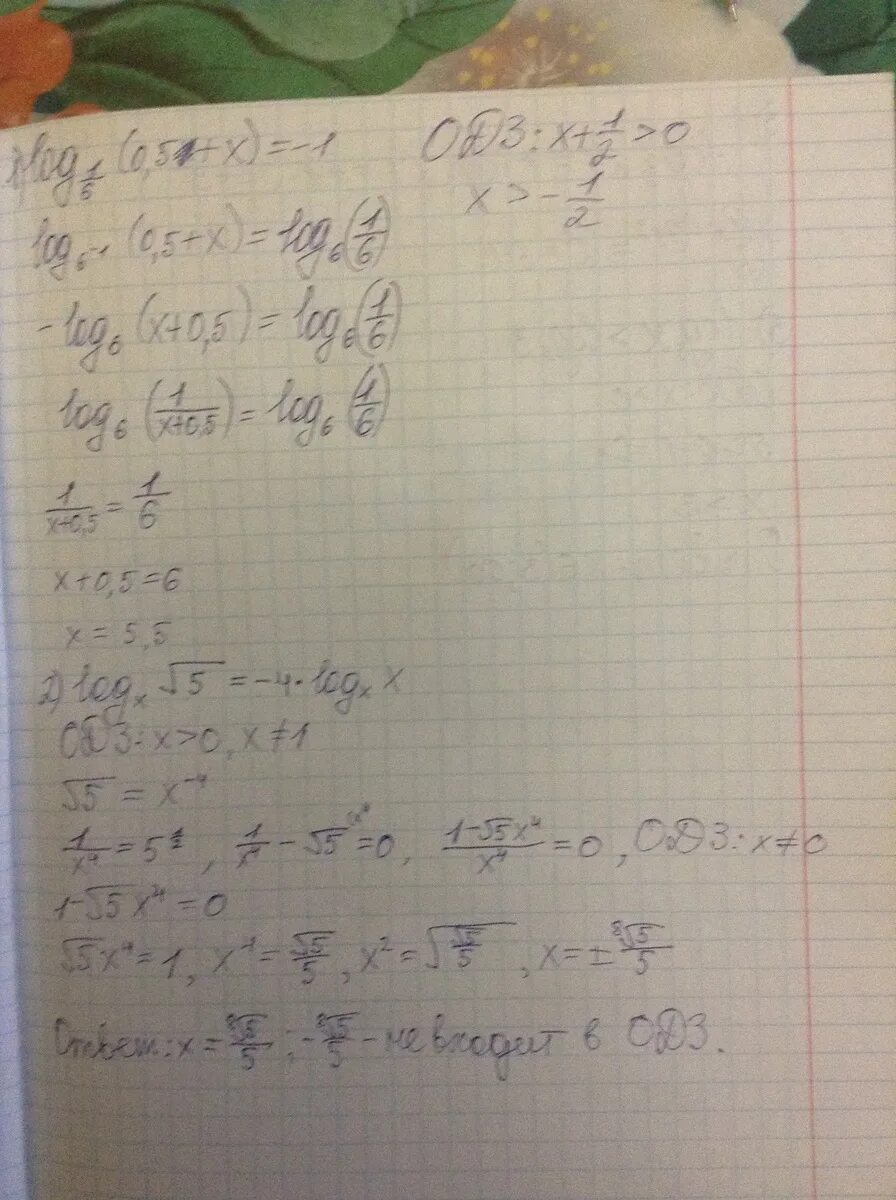 1) log_{1/6} (0,5+x) = -1
ОДЗ: x + 1/2 > 0
x > -1/2
log_{6^{-1}} (0,5+x) = log_6 (1/6)
-log_6 (x+0,5) = log_6 (1/6)
log_6 (1/(x+0,5)) = log_6 (1/6)
1/(x+0,5) = 1/6
x+0,5=6
x = 5,5
2) log_x √5 = -4·log_x x
ОДЗ: x>0, x≠1
√5 = x^{-4}
1/x^4 = 5^{1/2}, 1/x^4 - √5 = 0, (1-√5x^4)/x^4 = 0, ОДЗ: x≠0
1-√5 x^4 = 0
√5x^4 = 1, x^4 = √5/5, x^2 = √(√5/5), x = ± ⁸√5/5
Ответ: x = ⁸√5/5; -⁸√5/5 - не входит в ОДЗ.